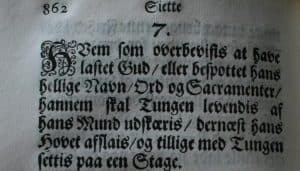 862 Siette
7.
HVem som overbevisis at have
lastet Gud/ eller bespottet hans
hellige Navn/ Ord og Sacramenter/
hannem skal Tungen levendis af
hans Mund udskæris/ dernæst hans
Hovet afslais/ og tillige med Tungen
settis paa een Stage.